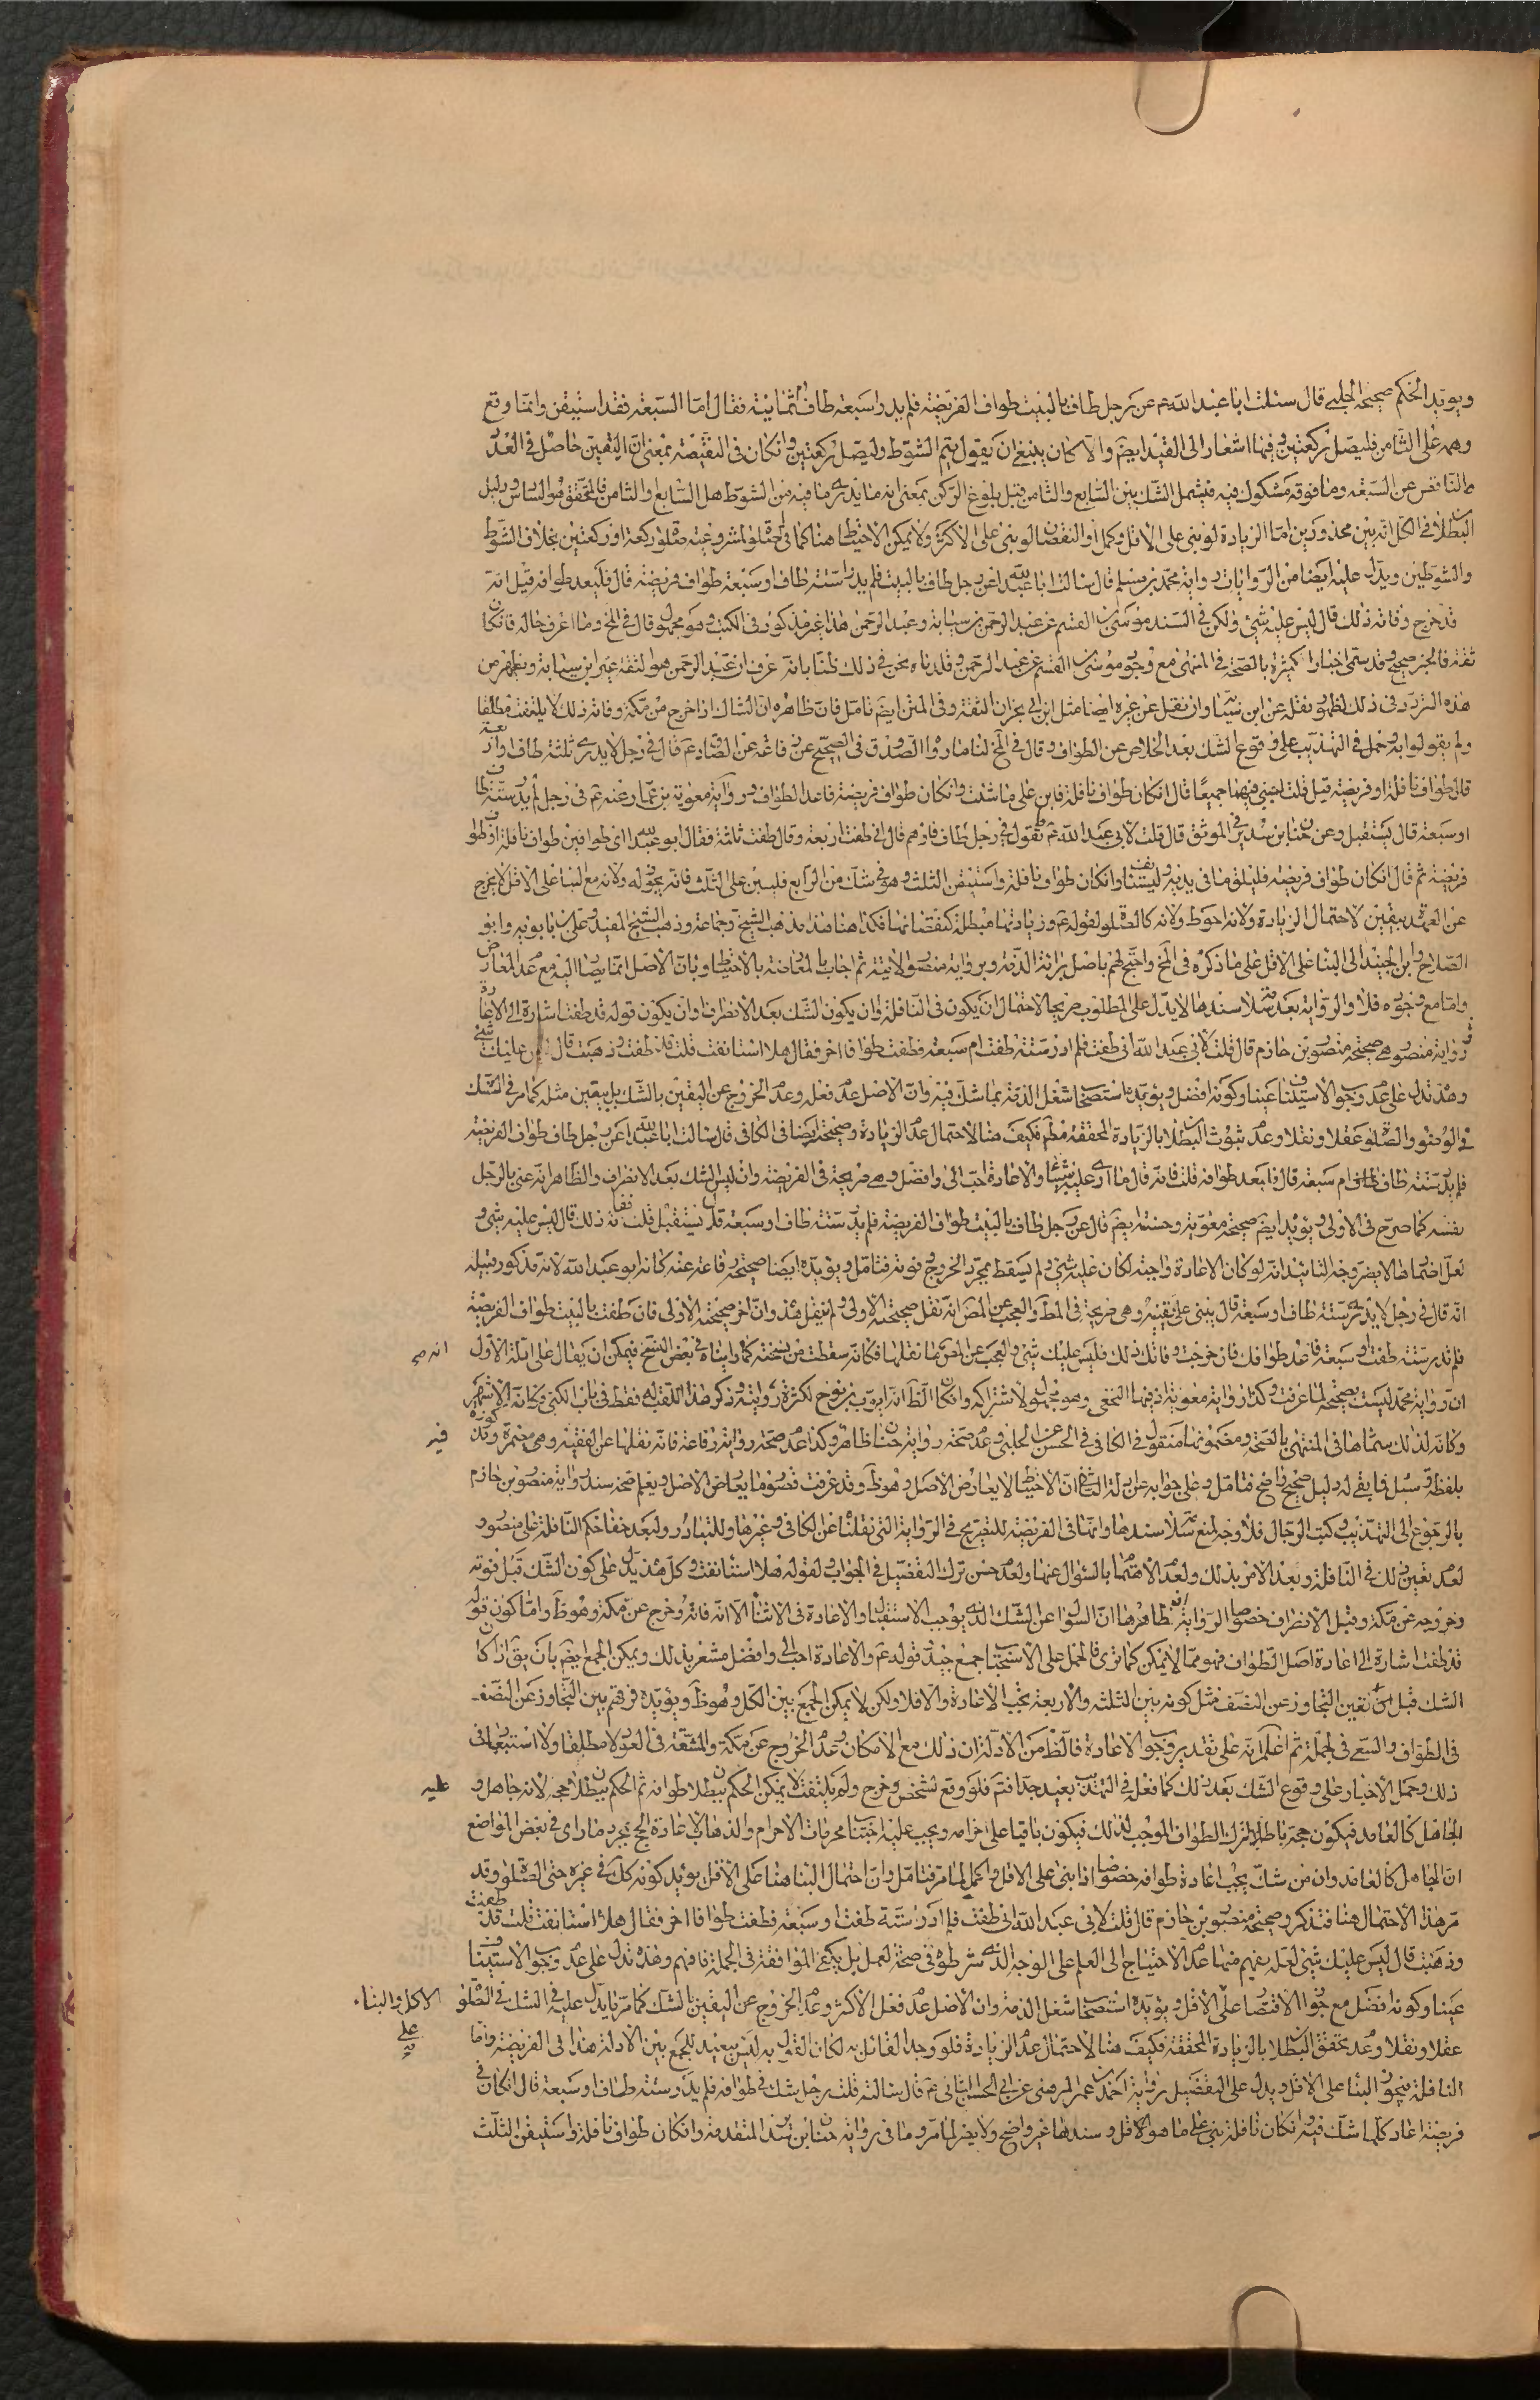 ويؤيد الحكم صحيحة الحلبي قال سئلت ابا عبد الله ع عن رجل طاف بالبيت طواف الفريضة فلم يدر اسبعة طاف ام ثمانية فقال اما السبعة فقد استيقن وانما وقع
وهمه على الثامن فليصل ركعتين وفيها اشعار الى القيد ايضم والا كان ينبغي ان يقول يتم الشوط وليصل ركعتين وان كان في النقيصة بمعنى ان اليقين حاصل في العدد
الناقص عن السبعة وما فوقه مشكوك فيه فيشمل الشك بين السابع والثامن قبل بلوغ الركن بمعنى انه ما يدرى ما فيه من الشوط هل السابع والثامن فالمحقق هو السادس ودليل
البطلان في الكل انه بين محذورين اما الزيادة لو بنى على الاقل وكمل او النقصان لو بنى على الاكثر ولا يمكن الاحتياط هنا كما في الصلوة لمشروعية صلوة ركعة او ركعتين بخلاف الشوط
والشوطين ويدل عليه ايضا من الروايات رواية محمد بن مسلم قال سالت ابا عبد الله ع عن رجل طاف بالبيت فلم يدر ستة طاف او سبعة طواف فريضة قال فليعد طوافه قيل انه
قد خرج وفاته ذلك قال ليس عليه شئ ولكن في السند موسى بن القسم عن عبد الرحمن بن سيابة وعبد الرحمن هذا غير مذكور في الكتب وهو مجهول قال في المخ وما اعرف حاله فان كان
ثقة فالخبر صحيح وقد سمى اخبارا كثيرة بالصحة في المنتهى مع وجود موسى بن القسم عن عبد الرحمن وقلدناه نحن في ذلك ظنا بانه عرف ان عبد الرحمن هو الثقة غير ابن سيابة ويظهر من
هذه التردد في ذلك لظهور نقله عن ابن سيابة وان نقل عن غيره ايضا مثل ابن ابي نجران الثقة وفي المتن ايضم تامل فان ظاهره ان الشاك اذا خرج من مكة وفاته ذلك لا يلتفت مطلقا
ولم يقولوا به وحمل في التهذيب على وقوع الشك بعد الخلاص عن الطواف وقال في المخ لنا ما رواه الصدوق في الصحيح عن رفاعة عن الصادق ع قال في رجل لا يدرى ثلثة طاف او اربعة
قال طواف نافلة او فريضة قيل قلت اجبني فيهما جميعا قال ان كان طواف نافلة فابن على ما شئت وان كان طواف فريضة فاعد الطواف ورواية معوية بن عمار عنه ع في رجل لم يدر ستة طاف
او سبعة قال يستقبل وعن حنان بن سدير في الموثق قال قلت لابي عبد الله ع ما تقول في رجل طاف فاوهم قال اني طفت اربعة وقال طفت ثلثة فقال ابو عبد الله اى طوافين طواف نافلة او طواف
فريضة ثم قال ان كان طواف فريضة فليلق ما في يديه وليستانف وان كان طواف نافلة واستيقن الثلث وهو في شك من الرابع فليبن على الثلث فانه يجوز له ولانه مع البناء على الاقل لا يخرج
عن العهدة بيقين لاحتمال الزيادة ولانه احوط ولانه كالصلوة لقوله ع وزيادتها مبطلة كنقصانها فكذا هنا هذا مذهب الشيخ وجماعة وذهب الشيخ المفيد وعلي بن بابويه وابو
الصلاح وابن الجنيد الى البناء على الاقل على ما ذكره في المخ واحتج لهم باصل برائة الذمة وبرواية منصور الاتية ثم اجاب بالمعارضة بالاحتياط وبان الاصل انما يصار اليه مع عدم المعارض
واما مع وجوده فلا والرواية بعد سلامة سندها لا يدل على المطلوب صريحا لاحتمال ان يكون في النافلة وان يكون الشك بعد الانصراف وان يكون قوله قد طفت اشارة الى الاعادة
ورواية منصور هى صحيحة منصور بن حازم قال قلت لابي عبد الله اني طفت فلم ادر ستة طفت ام سبعة فطفت طوافا اخر فقال هلا استانفت قلت قد طفت وذهبت قال ليس عليك شئ
وهذه تدل على عدم وجوب الاستيناف عينا وكونه افضل ويؤيده استصحاب شغل الذمة بما شك فيه وان الاصل عدم فعله وعدم الخروج عن اليقين بالشك بل بيقين مثله كما مر في الشك
في الوضوء والصلوة عقلا ونقلا وعدم ثبوت البطلان بالزيادة المحققة مطم فكيف هنا لاحتمال عدم الزيادة وصحيحته ايضا في الكافي قال سالت ابا عبد الله ع عن رجل طاف طواف الفريضة
فلم يدر ستة طاف ام سبعة قال فليعد طوافه قلت فاته قال ما ارى عليه شيئا والاعادة احب الى وافضل وهى صريحة في الفريضة وان ليس الشك بعد الانصراف والظاهر انه عنى بالرجل
نفسه كما صرح في الاولى ويؤيد ايضم صحيحة معوية وحسنته ايضم قال عن رجل طاف بالبيت طواف الفريضة فلم يدر ستة طاف او سبعة قال يستقبل قلت ففاته ذلك قال ليس عليه شئ و
لعل اضمارها لا يضر وجه التائيد انه لو كان الاعادة واجبة لكان عليه شئ ولم يسقط بمجرد الخروج وفوته فتامل ويؤيده ايضا صحيحة رفاعة عنه كانه ابو عبد الله لانه مذكور قبله
انه قال في رجل لا يدرى ستة طاف او سبعة قال يبنى على يقينه وهى صريحة في المط والعجب عن المص انه نقل صحيحته الاولى ولم ينقل هذه وان اخر صحيحته الاولى فان طفت بالبيت طواف الفريضة
فلم تدر ستة طفت او سبعة فاعد طوافك فان خرجت وفاتك ذلك فليس عليك شئ والعجب عن المص ما نقلها فكانه سقطت من نسخته كما رايناه في بعض النسخ فيمكن ان يقال على ادلة الاول
انه صح
ان رواية محمد ليست بصحيحة لما عرفت وكذا رواية معوية اذ فيها النخعي وهو مجهول لاشتراكه وان كان الظ انه ايوب بن نوح لكثرة روايته وذكر هذا اللقب له فقط في باب الكنى وكانه الاشهر
وكانه لذلك سماها في المنتهى بالصحة ومضمونها منقول في الكافي في الحسن عن الحلبي وعدم صحة رواية حنان ظاهر وكذا عدم صحة رواية رفاعة فانه نقلها عن الفقيه وهى مضمرة وقد كونه
فيه
بلفظة وسئل فما بقى له دليل صحيح واضح فتامل وعلى جوابه عن ادلة الثاني ان الاحتياط لا يعارض الاصل وهو ظ وقد عرفت قصور ما يعارض الاصل ويعلم صحة سند رواية منصور بن حازم
بالرجوع الى التهذيب وكتب الرجال فلا وجه لمنع سلامة سندها وانها في الفريضة للتصريح في الرواية التي نقلناها عن الكافي وغيرها وللتبادر ولبعد خفاء حكم النافلة على منصور
لعدم تعين ذلك في النافلة وبعد الامر بذلك ولعدم الاهتمام بالسؤال عنها ولعدم حسن ترك التفصيل في الجواب ولقوله هلا استانفت وكل هذه يدل على كون الشك قبل فوته
وخروجه عن مكة وقبل الانصراف خصوصا الرواية فان ظاهرها ان السؤال عن الشك الذي يوجب الاستقبال والاعادة في الاثناء الا انه فاته وخرج عن مكة وهو ظ واما كون قوله
قد طفت اشارة الى اعادة اصل الطواف فهو مما لا يمكن كما ترى فالحمل على الاستحباب جمع جيد وقوله ع والاعادة احب الى وافضل مشعر بذلك ويمكن الجمع ايضم بان يق اذا كان
الشك قبل تعين التجاوز عن النصف مثل كونه بين الثلثة والاربعة يجب الاعادة والا فلا ولكن لا يمكن الجمع بين الكل وهو ظ ويؤيده فرقهم بين التجاوز عن النصف
في الطواف والسعي في الجملة ثم اعلم انه على تقدير وجوب الاعادة فالظ من الادلة ان ذلك مع الامكان وعدم الخروج عن مكة والمشقة في العود لا مطلقا ولا استبعاد في
ذلك وحمل الاخبار على وقوع الشك بعد ذلك كما فعل في التهذيب بعيد جدا فتم فلو وقع لشخص وخرج ولم يلتفت لا يمكن الحكم ببطلان طوافه ثم الحكم ببطلان حجه لانه جاهل و
عليه
الجاهل كالعامد فيكون حجه باطلا لترك الطواف الموجب لذلك فيكون باقيا على احرامه ويجب عليه اجتناب محرمات الاحرام والذهاب لاعادة الحج بمجرد ما راى في بعض المواضع
ان الجاهل كالعامد وان من شك يجب اعادة طوافه خصوصا اذا بنى على الاقل واكمل لما مر فتامل وان احتمال البناء هنا على الاقل يؤيد كونه كل في غيره حتى الصلوة وقد
مر هذا الاحتمال هنا فتذكر وصحيحة منصور بن حازم قال قلت لابي عبد الله اني طفت فلم ادر ستة طفت او سبعة فطفت طوافا اخر فقال هلا استانفت قلت قد طفت
وذهبت قال ليس عليك شئ لعله يفهم منها عدم الاحتياج الى العلم على الوجه الذي شرطوه في صحة العمل بل يكفى الموافقة في الجملة فافهم وهذه تدل على عدم وجوب الاستيناف
عينا وكونه افضل مع جواز الاقتصار على الاقل ويؤيده استصحاب شغل الذمة وان الاصل عدم فعل الاكثر وعدم الخروج عن اليقين بالشك كما مر ما يدل عليه في الشك في الصلوة
الاكل والبناء
على
عقلا ونقلا وعدم تحقق البطلان بالزيادة المحققة فكيف هنا لاحتمال عدم الزيادة فلو وجد القائل به لكان القول به ليس ببعيد للجمع بين الادلة هذا في الفريضة واما
النافلة فيجوز البناء على الاقل ويدل على التفصيل رواية احمد بن عمر المرهبي عن ابي الحسن الثاني ع قال سالته قلت رجل شك في طوافه فلم يدر ستة طاف او سبعة قال ان كان في
فريضة اعاد كلما شك فيه وان كان نافلة بنى على ما هو الاقل وسندها غير واضح ولا يضر لما مر وما في رواية حنان بن سدير المتقدمة وان كان طواف نافلة واستيقن الثلث